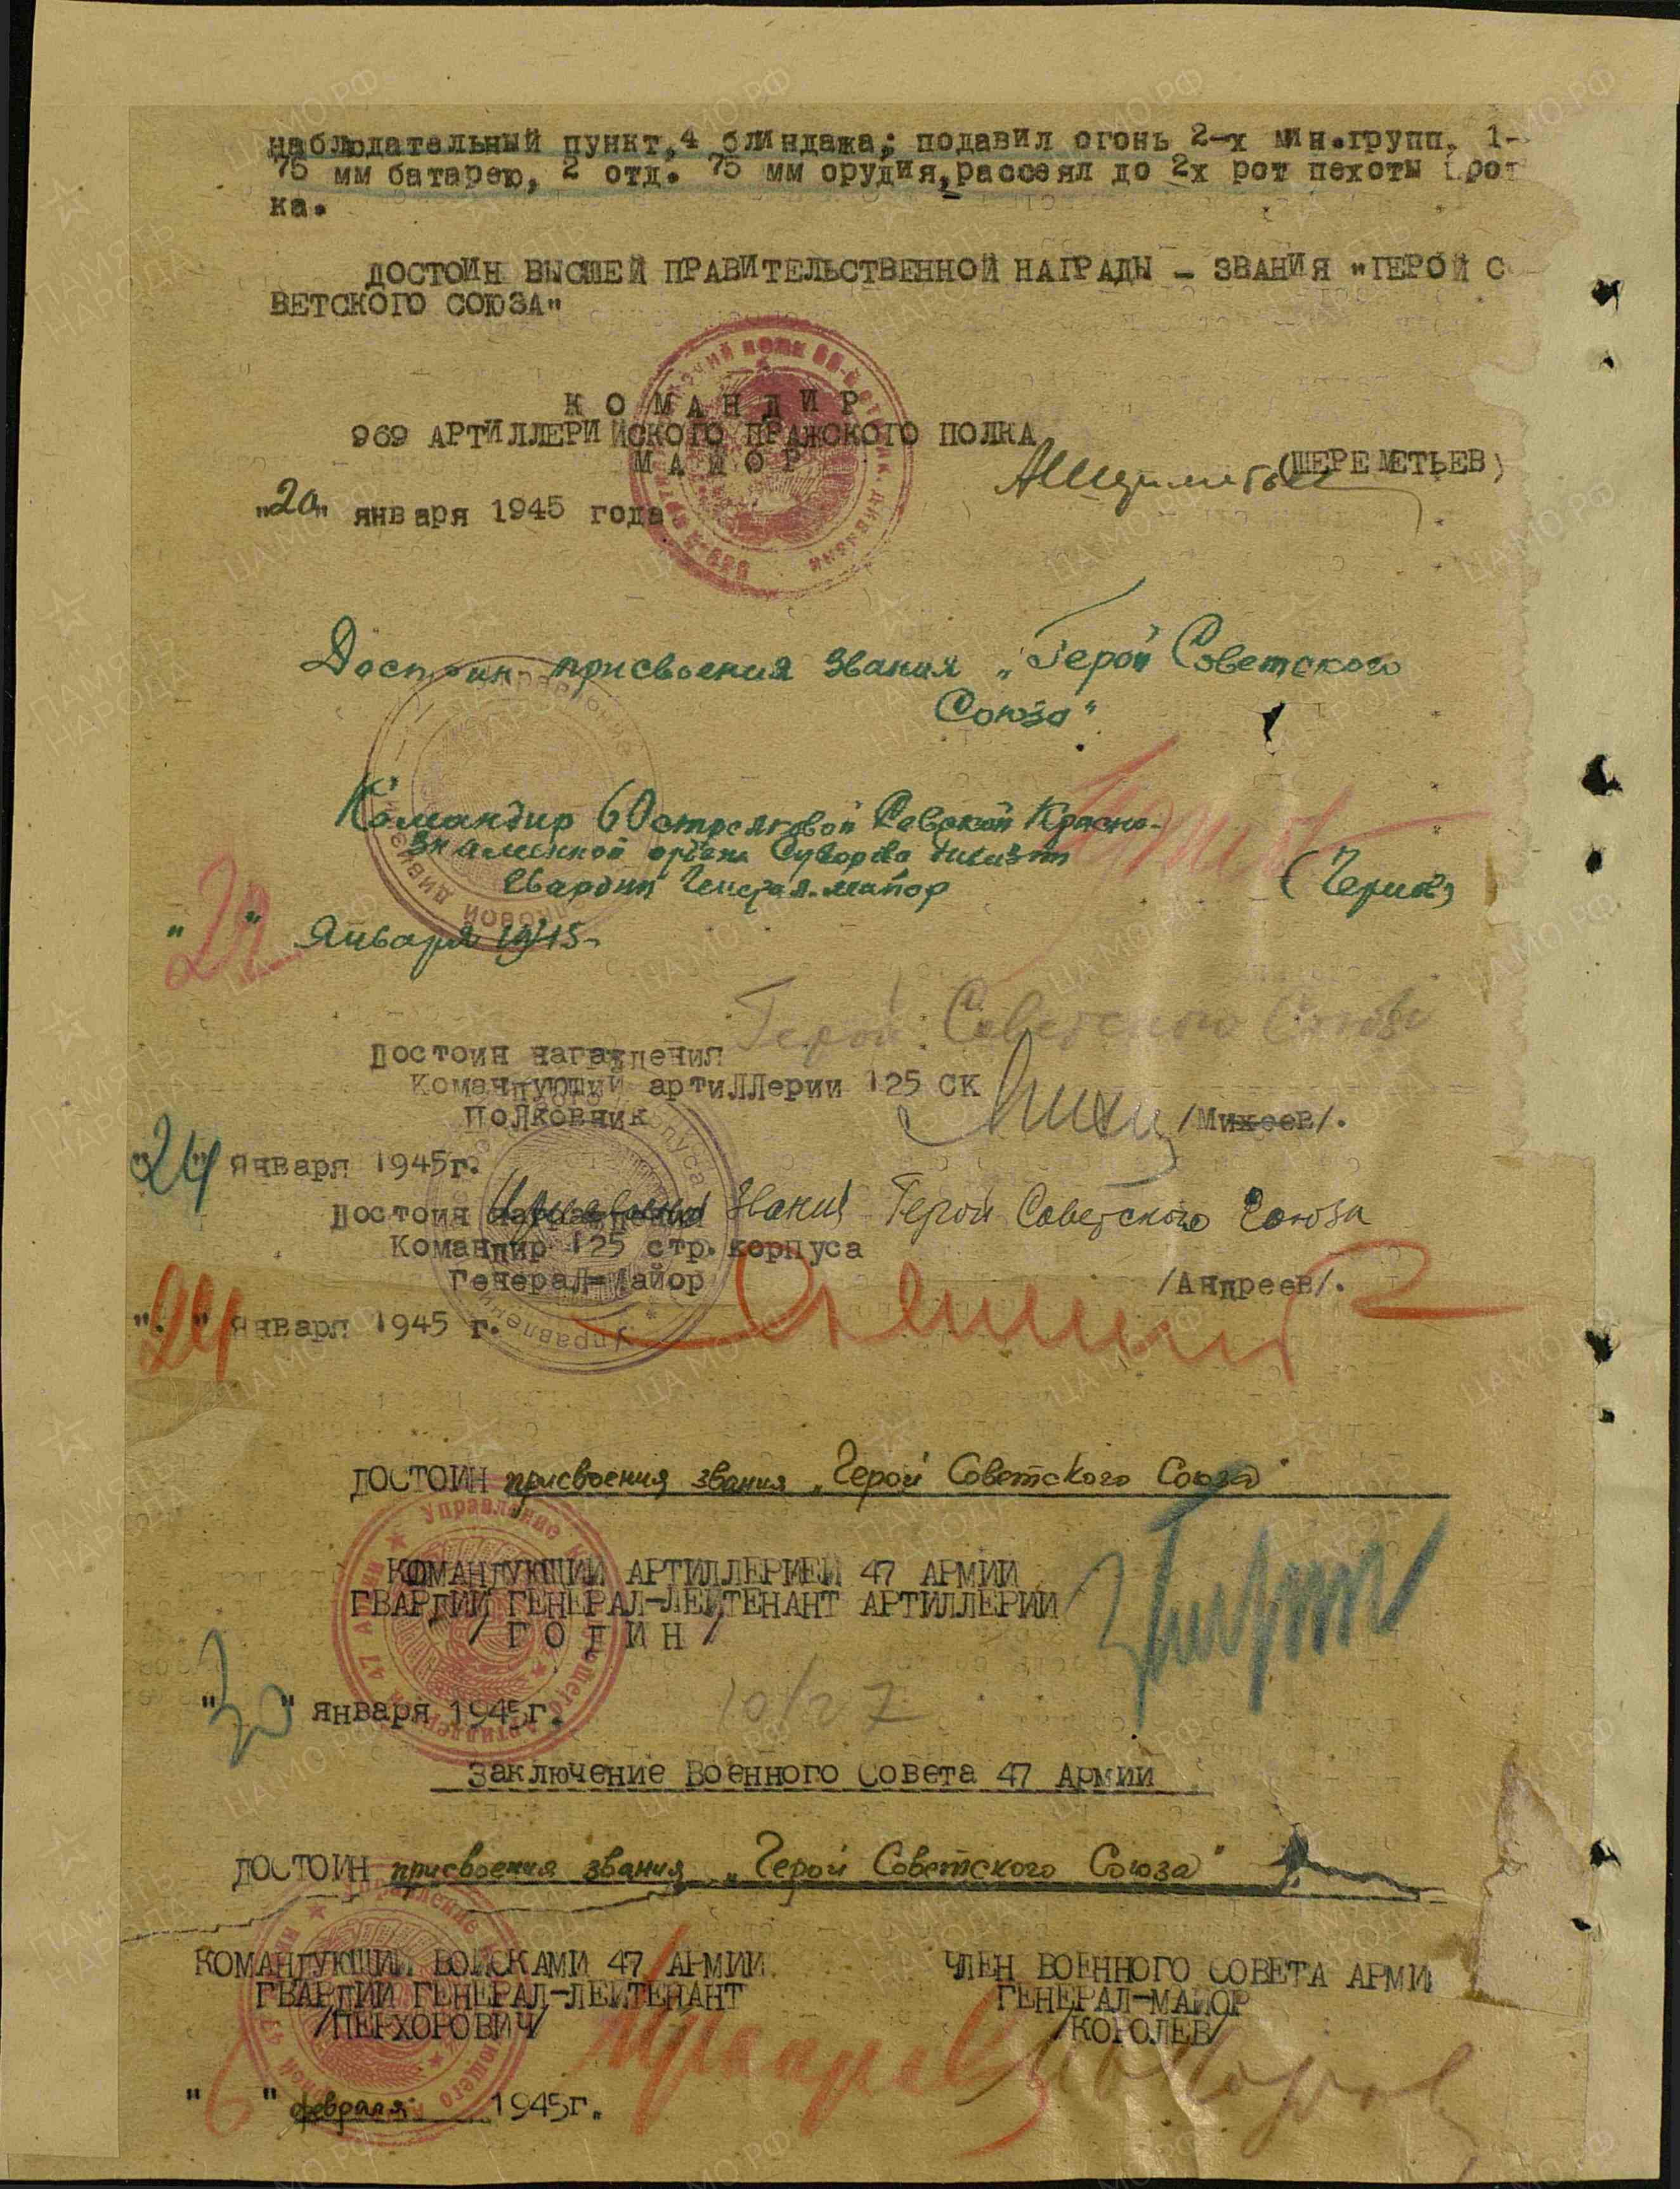 наблюдательный пункт, 4 блиндажа; подавил огонь 2-х мин.групп, 1-
75 мм батарею, 2 отд. 75 мм орудия, рассеял до 2х рот пехоты прот
ка.
ДОСТОИН ВЫСШЕЙ ПРАВИТЕЛЬСТВЕННОЙ НАГРАДЫ – ЗВАНИЯ "ГЕРОЙ С
ВЕТСКОГО СОЮЗА"
КОМАНДИР
969 АРТИЛЛЕРИЙСКОГО ПРАЖСКОГО ПОЛКА
МАЙОР
(ШЕРЕМЕТЬЕВ)
"20" января 1945 года
Достоин присвоения звания „Герой Советского
Союза"
Командир 60 стрелковой Севской Красно-
знаменной ордена Суворова дивизии
Гвардии Генерал-майор
(Чернов)
"22" Января 1945-
Герой Советского Союза
Достоин награждения
Командующий артиллерии 125 СК
Полковник
/Михеев/.
"24" января 1945г.
Достоин награждения звания Герой Советского Союза
Командир 125 стр. корпуса
Генерал-Майор
/Андреев/.
"24" января 1945 г.
ДОСТОИН присвоения звания „Герой Советского Союза"
КОМАНДУЮЩИЙ АРТИЛЛЕРИЕЙ 47 АРМИИ
ГВАРДИИ ГЕНЕРАЛ-ЛЕЙТЕНАНТ АРТИЛЛЕРИИ
/ГОДИН/
"30" января 1945г.
10/27
Заключение Военного Совета 47 Армии
ДОСТОИН присвоения звания „Герой Советского Союза"
КОМАНДУЮЩИЙ ВОЙСКАМИ 47 АРМИИ
ГВАРДИИ ГЕНЕРАЛ-ЛЕЙТЕНАНТ
/ПЕРХОРОВИЧ/
ЧЛЕН ВОЕННОГО СОВЕТА АРМИ
ГЕНЕРАЛ-МАЙОР
/КОРОЛЕВ/
"6" февраля 1945г.